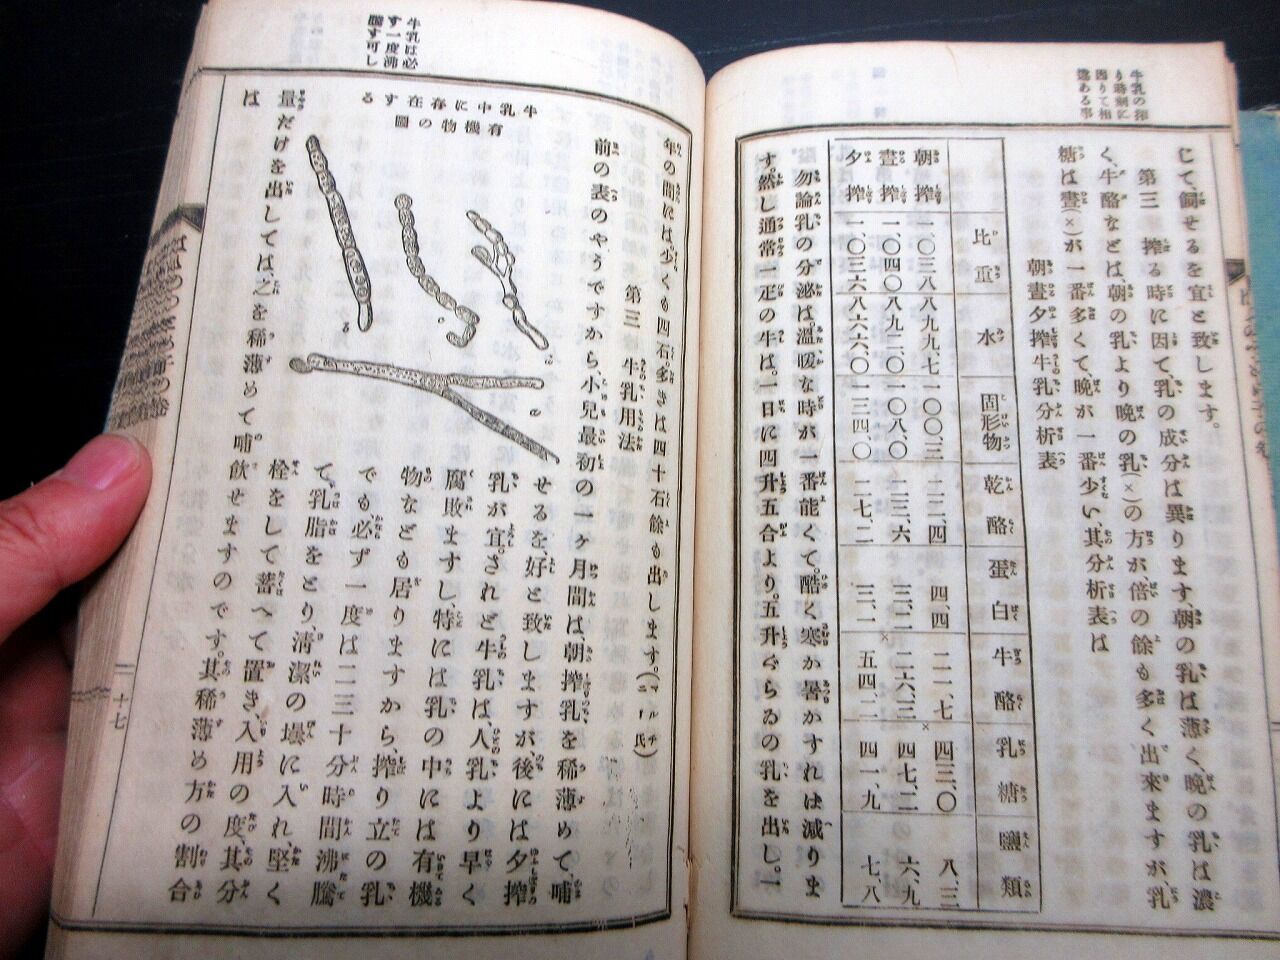 牛乳の搾
り時刻に
因りて相
違ある事
じて、飼せるを宜と致します。
第三　搾る時に因て、乳の成分は異ります朝の乳は薄く、晩の乳は濃
く、牛酪などは、朝の乳より晩の乳(×)の方が倍の餘も多く出來ますが乳
糖は晝(×)が一番多くて、晩が一番少い、其分析表は
朝晝夕搾牛乳分析表
比重　水　固形物　乾酪　蛋白　牛酪　乳糖　鹽類
朝搾　一、〇三八　八九九、七　一〇〇、三　二二、四　四、四　二一、七　四三、〇　八、三
晝搾　一、〇四〇　八九二、〇　一〇八、〇　二三、六　三、二　二六、三　四七、二　六、九
夕搾　一、〇三六　八六六、〇　一三四、〇　二七、二　三、一　五四、二　四一、九　七、八
勿論乳の分泌は、溫暖な時が一番能くて、酷く寒か暑かすれは減りま
す。然し通常一疋の牛は。一日に四升五合より。五升ぐらゐの乳を出し。一
牛乳は必
す一度沸
騰す可し
年の間には、少くも四石、多きは四十石餘も出します。(マルチニー氏)
第三　牛乳用法
前の表のやうですから小兒最初の一ヶ月間は、朝搾乳を稀薄めて、哺
牛乳中に存在する
有機物の圖
せるを、好と致しますが、後には夕搾
乳が宜。されど牛乳は、人乳より早く
腐敗ますし、特には乳の中には有機
物なども居りますから、搾り立の乳
でも、必ず一度は二三十分時間沸騰
て、乳脂をとり、清潔の壜に入れ、堅く
栓をして蓄へて置き、入用の度、其分
量だけを出しては、之を稀薄めて哺飲せますのです。其稀薄め方の割合
は
十七